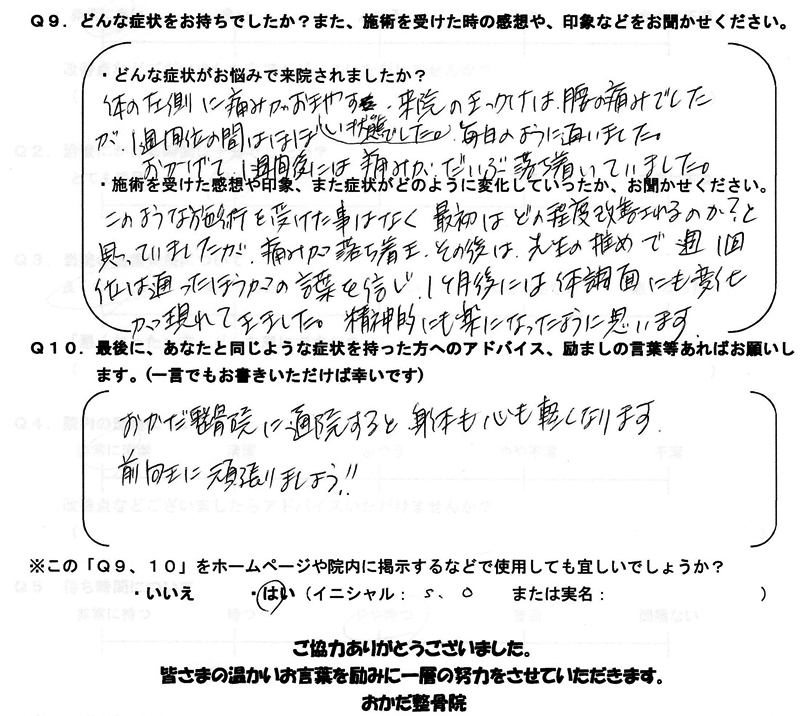 Q9．どんな症状をお持ちでしたか？また、施術を受けた時の感想や、印象などをお聞かせください。
・どんな症状がお悩みで来院されましたか？
体の左側に痛みがおきやすく、来院のきっかけは、腰の痛みでした
が、1週間位の間はほぼ 状態でした。毎日のように通いました。
おかげで、1週間後には痛みが、だいぶ落ち着いていました。
・施術を受けた感想や印象、また症状がどのように変化していったか、お聞かせください。
このような施術を受けた事はなく 最初は、どの程度改善されるのか？と
思っていましたが、痛みが落ち着き、その後は、先生の推めで週1回
位は通ったほうがの言葉を信じ、1ヶ月後には、体調面にも変化
が現れてきました。精神的にも楽になったように思います。
Q10．最後に、あなたと同じような症状を持った方へのアドバイス、励ましの言葉等あればお願いし
ます。(一言でもお書きいただけば幸いです)
おかだ整骨院に通院すると身体も心も軽くなります。
前向きに頑張りましょう!!
※この「Q9、10」をホームページや院内に掲示するなどで使用しても宜しいでしょうか？
・いいえ ・はい（イニシャル： S、O または実名： ）
ご協力ありがとうございました。
皆さまの温かいお言葉を励みに一層の努力をさせていただきます。
おかだ整骨院